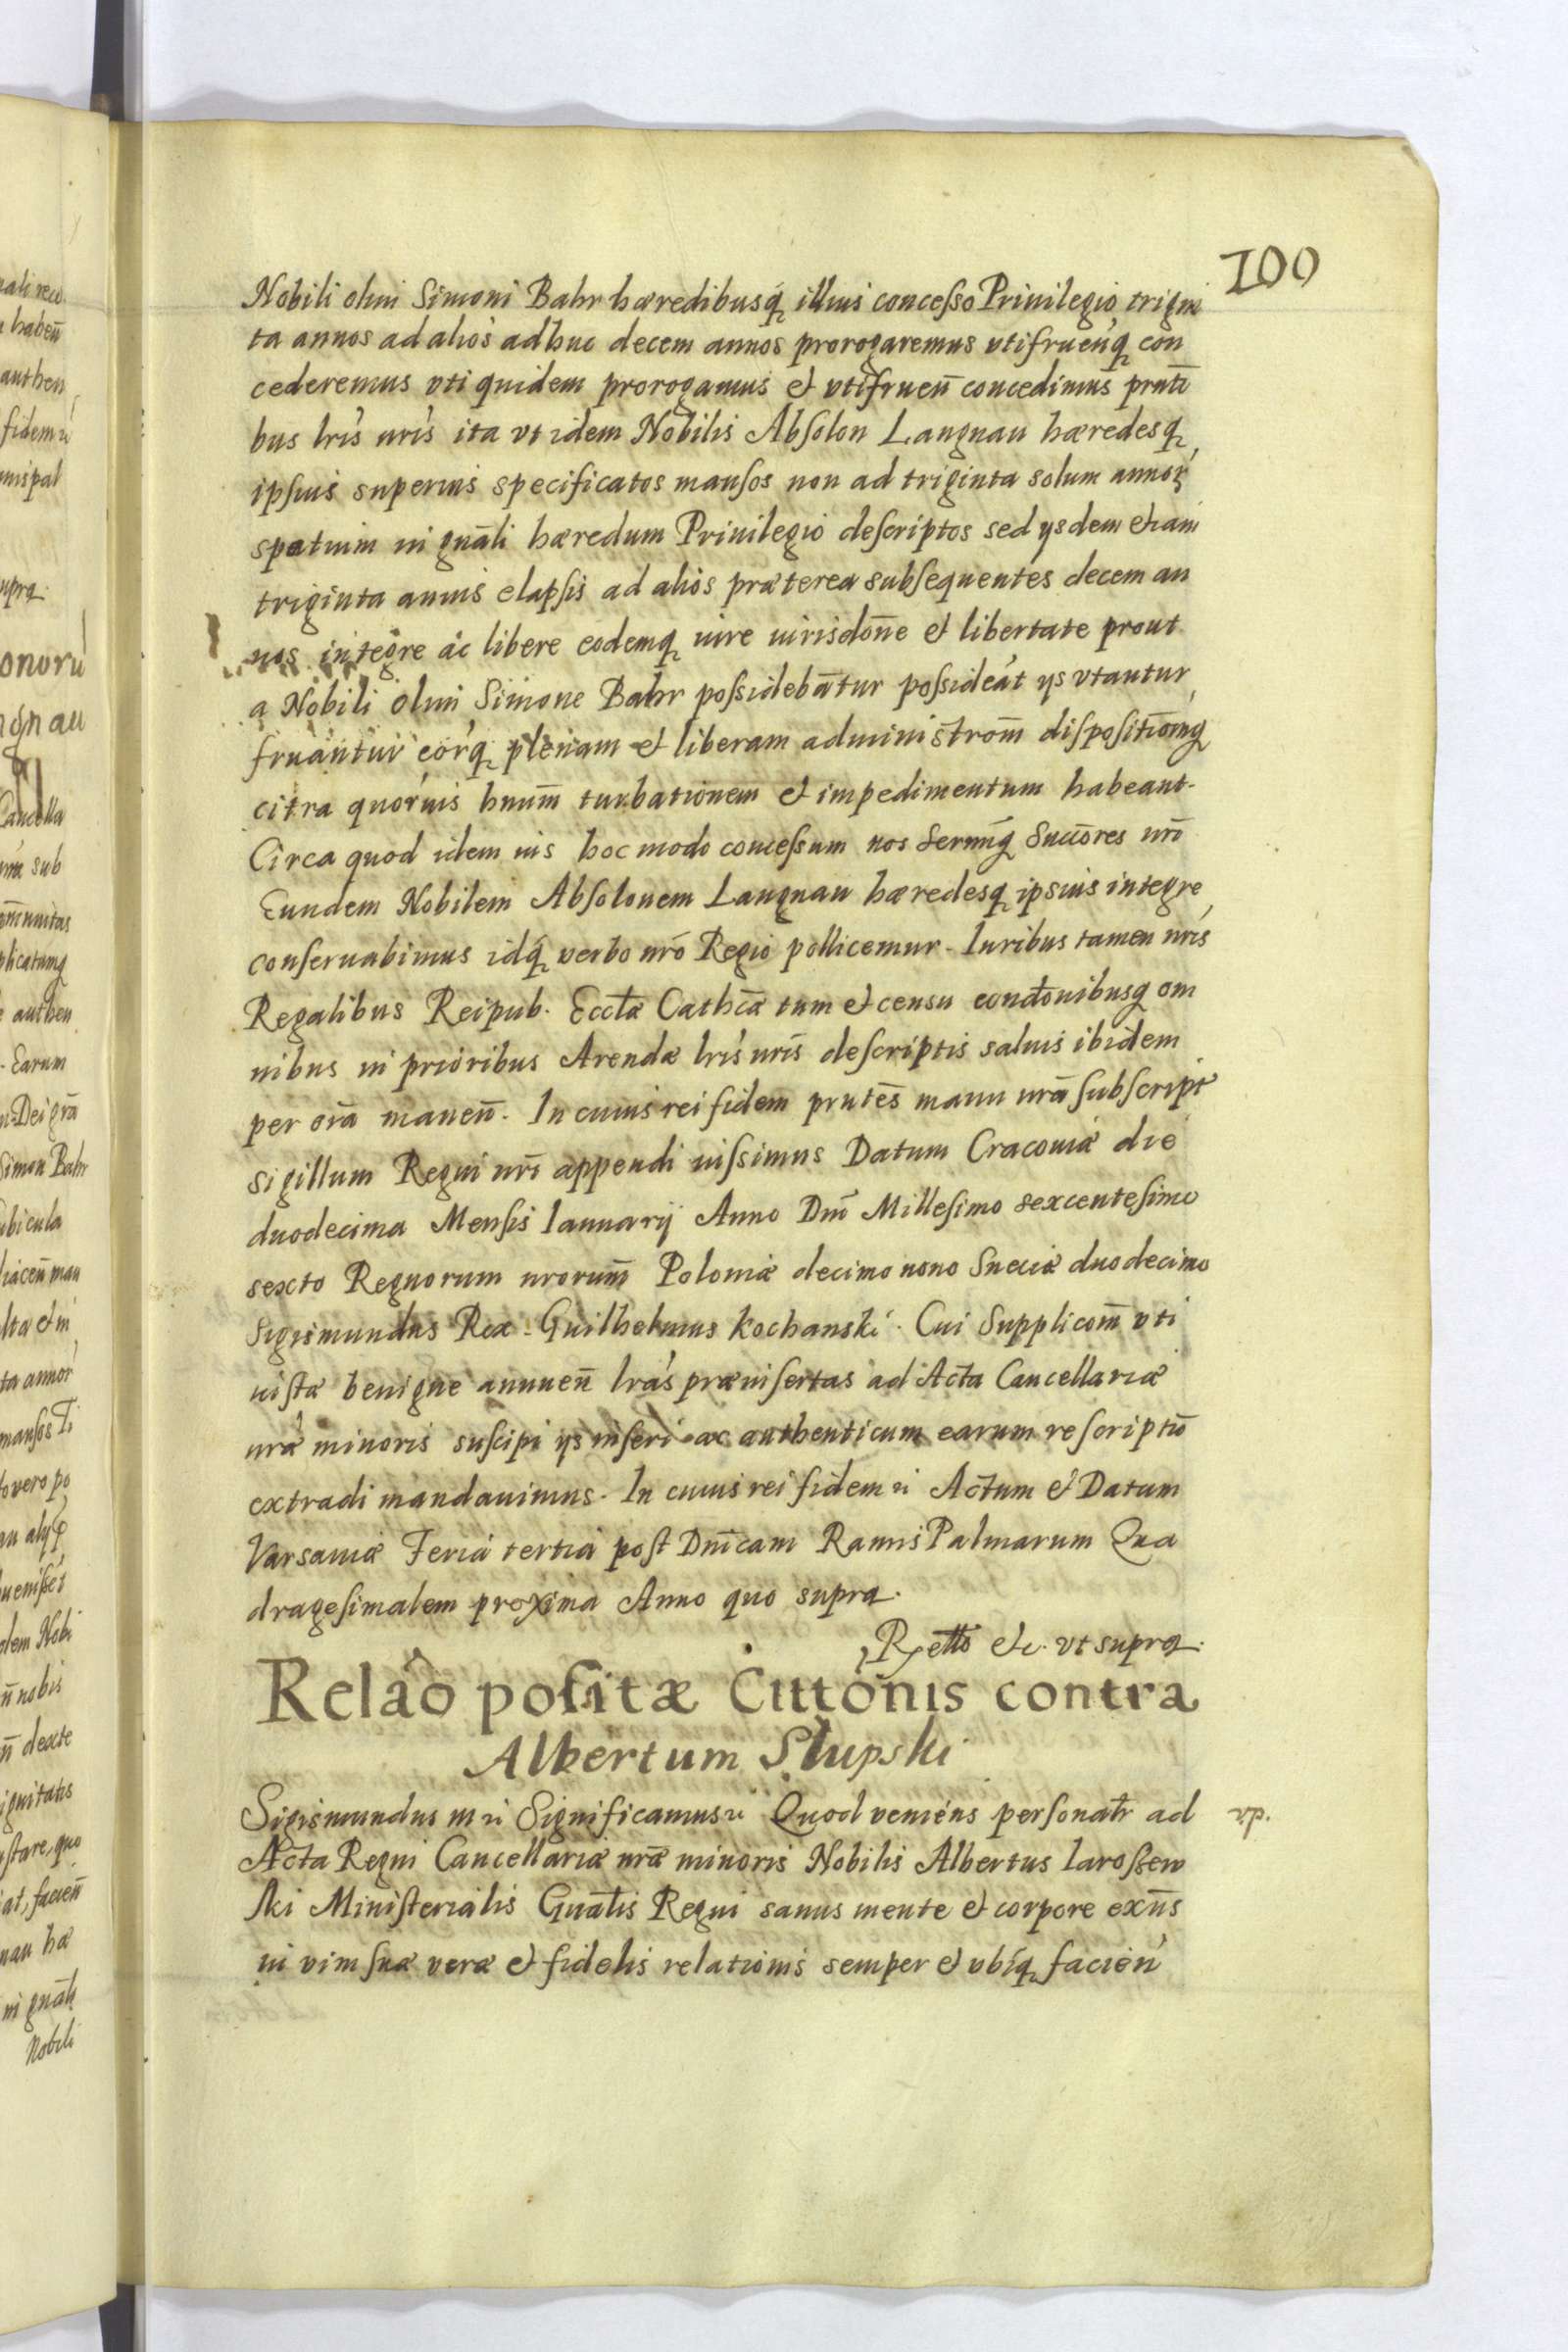 100
Nobili olim Simoni Bahr hæredibusq́ illius concesso Priuilegio trigin
ta annos ad alios adhuc decem annos prorogaremus vtifruen̄q con
cederemus vti quidem prorogamus et vtifruen̄ concedimus pñti
bus lrís nrís ita vt idem Nobilis Absolon Langnau hæredesq
ipsius superius specificatos mansos non ad triginta solum annoꝝ
spatium in gnāli hæredum Priuilegio descriptos sed ijsdem etiam
triginta annis elapsis ad alios præterea subsequentes decem an
nos integre ac libere eodemq iure iurisdōne et libertate prout
a Nobili olim Simone Bahr possidebātur possideāt ijs vtantur
fruantur eorq plenam et liberam administrom̄ dispositiōmq
citra quoruis hnūm turbationem et impedimentum habeant.
Circa quod idem ius hoc modo concessum nos Serm̄iq Succōres nrī
Eundem Nobilem Absolonem Langnau hæredesq ipsius integre
conseruabimus idq́ verbo nrō Regio pollicemur. Iuribus tamen nrís
Regalibus Reipub. Ecctæ Cathcæ tum et censu condōnibusq om
nibus in prioribus Arendæ lrís nrís descriptis saluis ibidem
per oīa manen̄. In cuius rei fidem pñtes manu nrā subscript
sigillum Regni nrī appendi iussimus Datum Cracouiæ die
duodecima Mensis Ianuarij Anno Dnī Millesimo sexcentesimo
sexto Regnorum nrorum̄ Poloniæ decimo nono Sueciæ duodecimo
Sigismundus Rex. Guilhelmus Kochanski. Cui Supplicom̄ vti
iustæ benigne annuen̄ lrás præinsertas ad Acta Cancellariæ
nræ minoris suscipi ijs inseri ac authenticum earum rescriptū
extradi mandauimus. In cuius rei fidem ꝛc Actum et Datum
Varsauiæ Feria tertia post Dnīcam Ramis Palmarum Qua
dragesimalem proxima Anno quo supra.
Rxetto etc. vt supra.
Relaō positæ Cittōnis contra
Albertum Słupski
v.p.
Sigismundus III ꝛc Significamus ꝛc Quod veniens personalr ad
Acta Regni Cancellariæ nræ minoris Nobilis Albertus Iaroszew
ski Ministerialis Gnālis Regni sanus mente et corpore exn̄s
in vim suæ veræ et fidelis relationis semper et vbiq́ facien̄